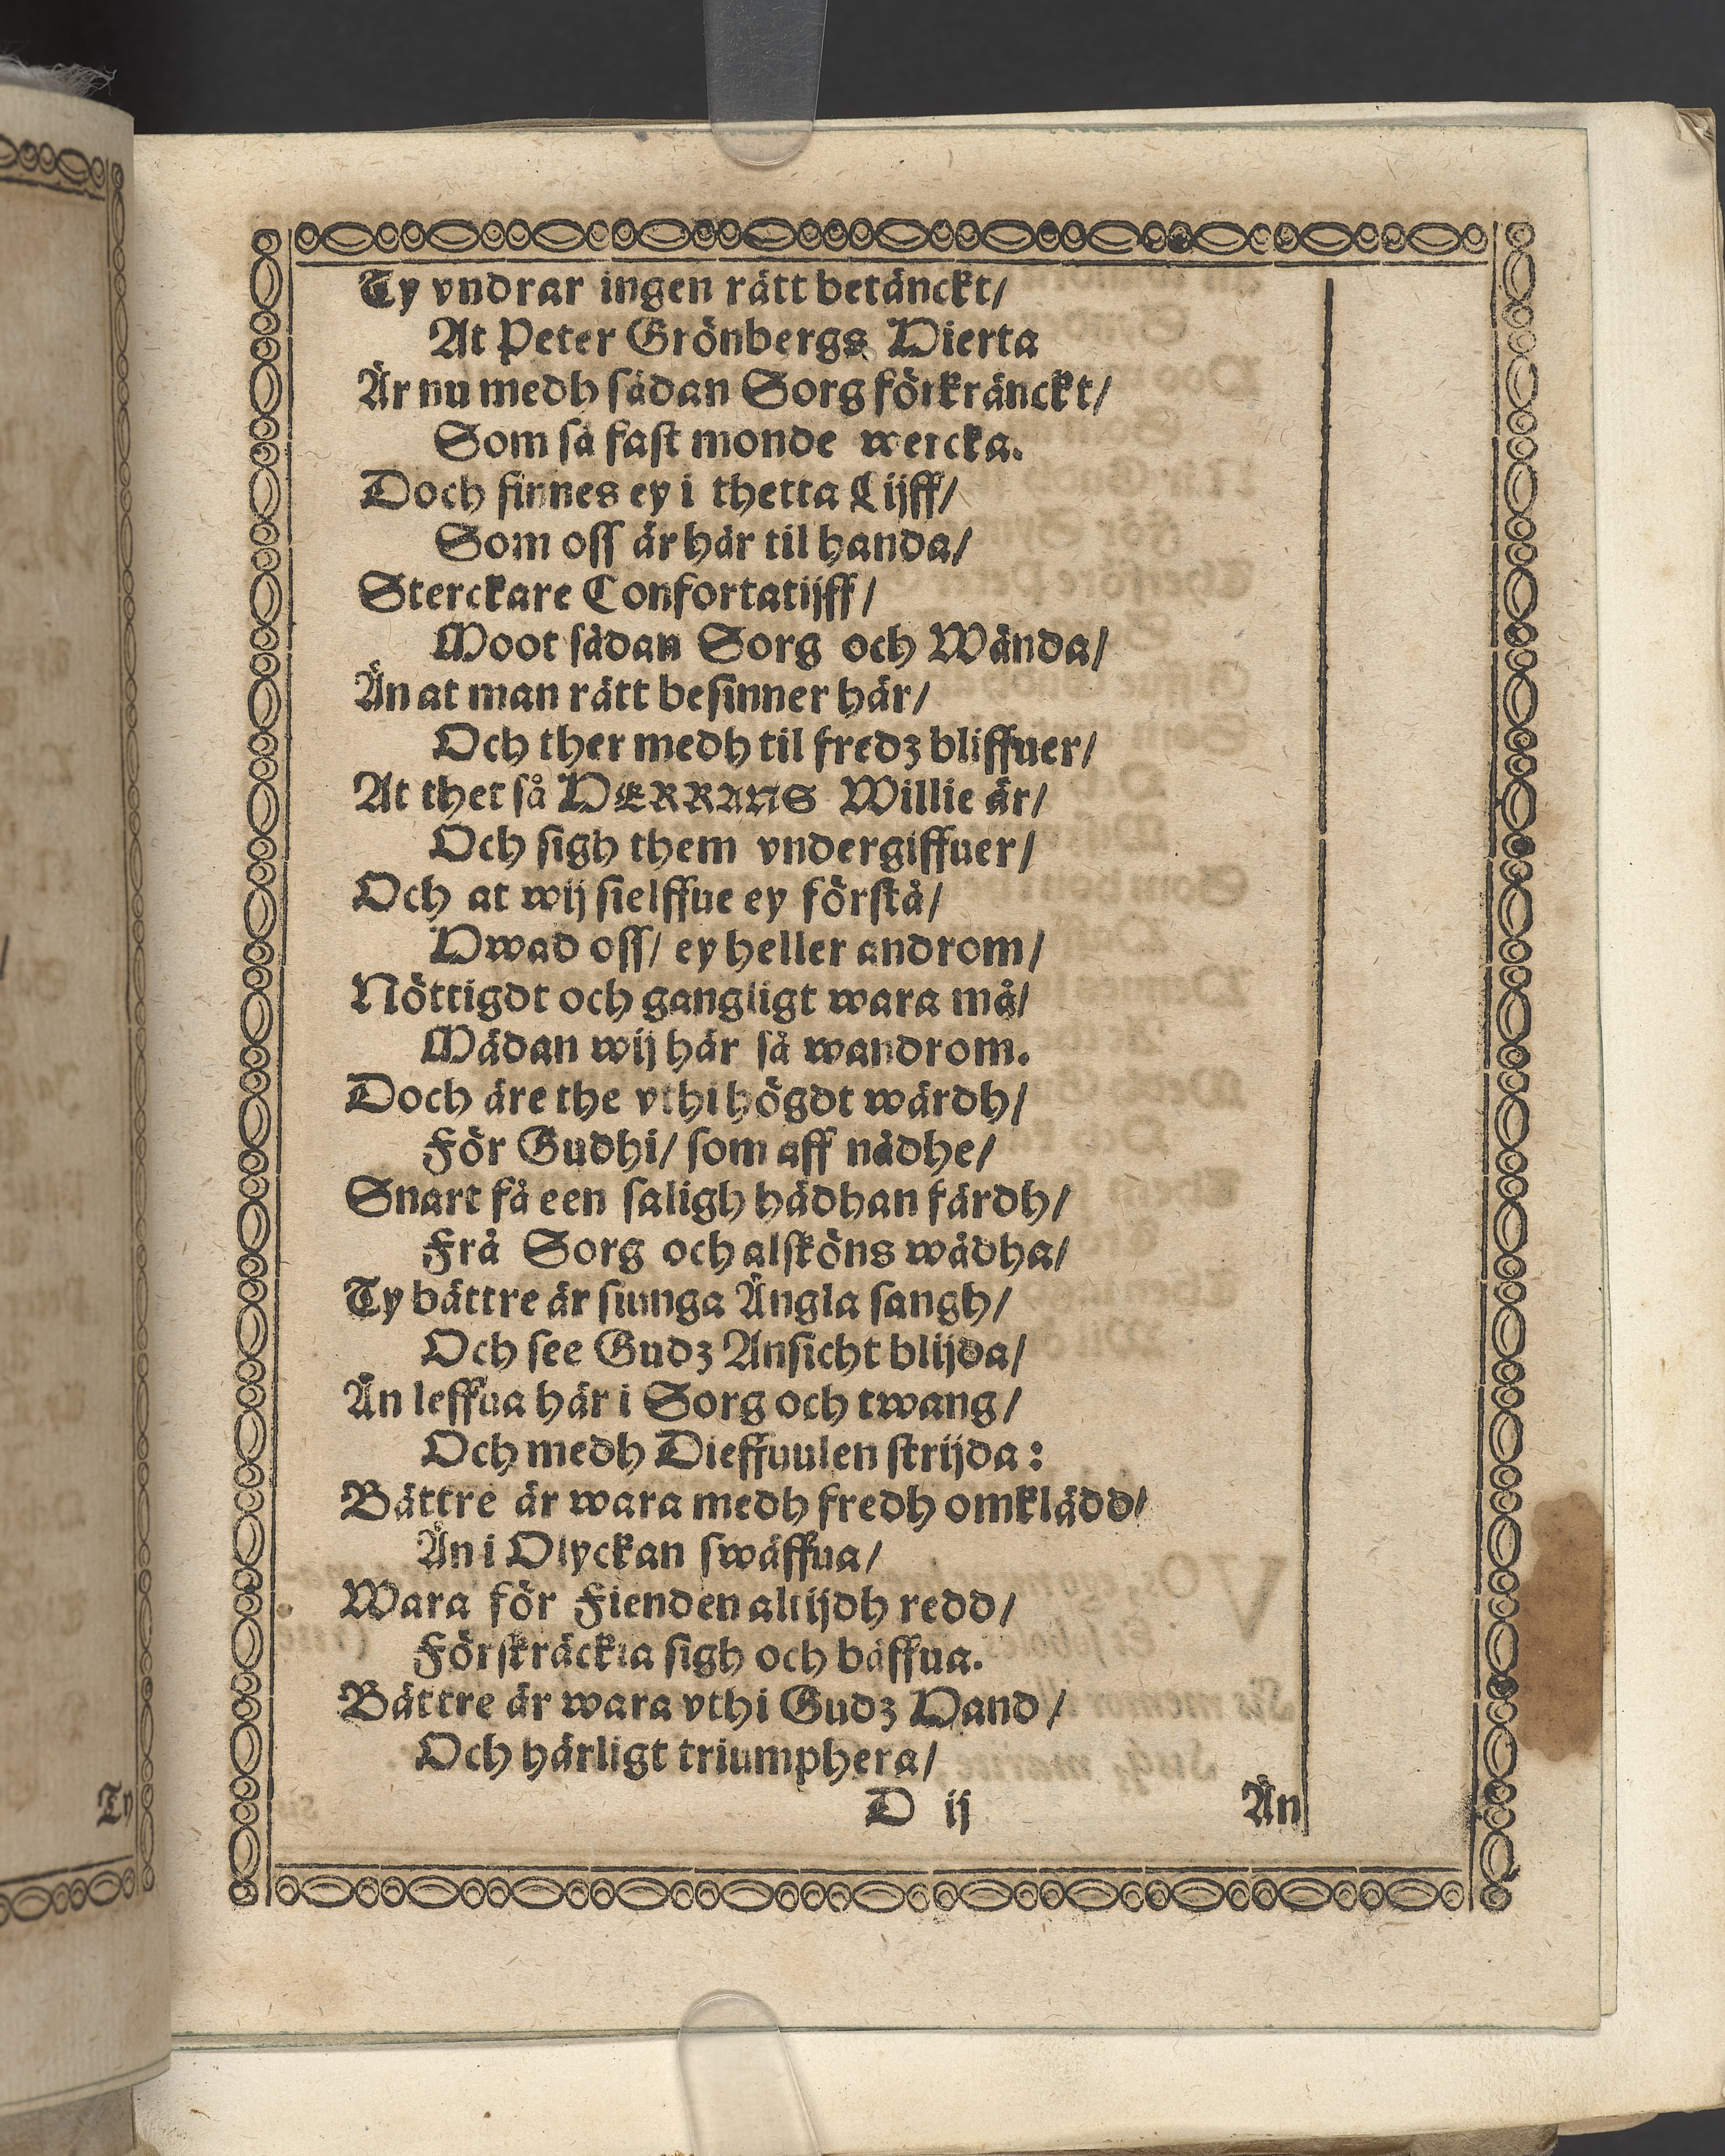 Ty vndrar ingen rätt betänckt/
At Peter Grönbergs Hierta
Är nu medh sådan Sorg förkränckt/
Som så fast monde wercka.
Doch finnes ey i thetta Lijff/
Som oss är här til handa/
Sterckare Confortatijff/
Moot sådan Sorg och Wånda/
Än at man rätt besinner här/
Och ther medh til fredz bliffuer/
At thet så HERRANS Willie är/
Och sigh them vndergiffuer/
Och at wij sielffue ey förstå/
Hwad oss/ ey heller androm/
Nöttigdt och gangligt wara må/
Mådan wij här så wandrom.
Doch äre the vthi högdt wärdh/
För Gudhi/ som aff nådhe/
Snart få een saligh hädhan färdh/
Frå Sorg och alsköns wådha/
Ty bättre är siunga Ängla sångh/
Och see Gudz Ansicht blijda/
Än leffua här i Sorg och twång/
Och medh Dieffuulen strijda:
Bättre är wara medh fredh omklädd/
Än i Olyckan swäffua/
Wara för Fienden altijdh redd/
Förskräckia sigh och bäffua.
Bättre är wara vthi Gudz Hand/
Och härligt triumphera/
D ij
Än
Ty